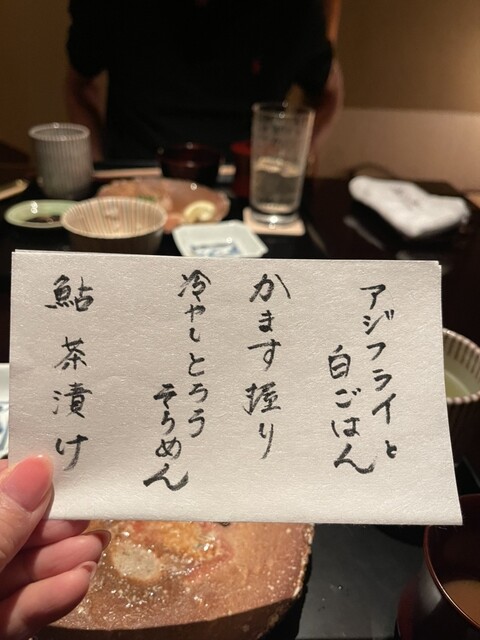 アジフライと
白ごはん
かます握り
冷やしとろろ
そうめん
鮎茶漬け